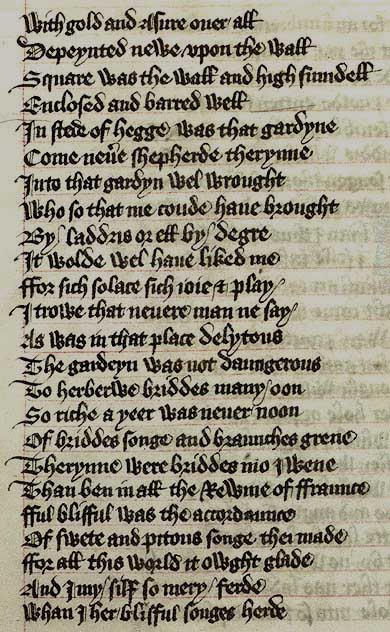 With gold and Asure ouer all
Depeynted newe vpon the wall
Square was the wall and high sumdell
Enclosed and barred well
In stede of hegge was that gardyne
Come neu̾e shepherde therynne
Into that gardyn wel wrought
Who so that me coude haue brought
By / laddris or ell by / degre
It wolde wel haue liked me
ffor sich solace sich ioie & play /
I trowe that neuere man ne say /
As was in that place delytous
The gardeyn was not daungerous
To herberwe briddes many / oon
So riche a yeer was neuer noon
Of briddes songe and braunches grene
Therynne were briddes mo I wene
Than ben in all the Rewme of ffraunce
fful blisful was the accordaunce
Of swete and pitous songe thei made
ffor all this world it owght glade
And I my / silf so mery / ferde
Whan I her blisful songes herde